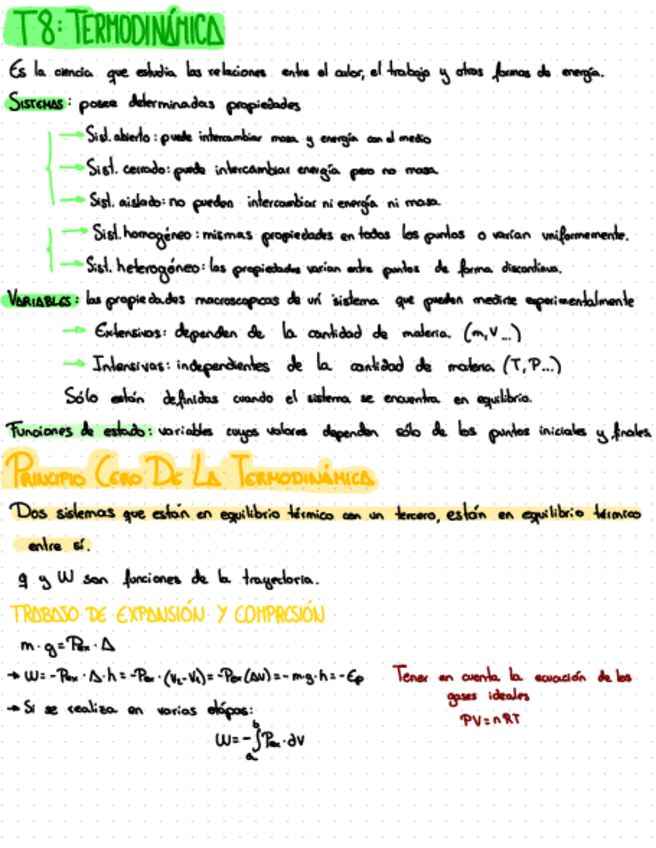 T8: TERMODINÁMICA
Es la ciencia que estudia las relaciones entre el calor, el trabajo y otras formas de energía.
SISTEMAS: posee determinadas propiedades
→ Sist. abierto: puede intercambiar masa y energía con el medio
→ Sist. cerrado: puede intercambiar energía pero no masa
→ Sist. aislado: no pueden intercambiar ni energía ni masa.
→ Sist. homogéneo: mismas propiedades en todos los puntos o varían uniformemente.
→ Sist. heterogéneo: las propiedades varian entre puntos de forma discontinua.
VARIABLES: las propiedades macroscopicas de un sistema que pueden medirse experimentalmente
→ Extensivas: dependen de la cantidad de materia. (m, V...)
→ Intensivas: independientes de la cantidad de materia (T, P...)
Sólo están definidas cuando el sistema se encuentra en equilibrio.
Funciones de estado: variables cuyos valores dependen sólo de los puntos iniciales y finales
PRINCIPIO CERO DE LA TERMODINÁMICA
Dos sistemas que están en equilibrio térmico con un tercero, están en equilibrio térmico
entre sí.
q y W son funciones de la trayectoria.
TRABAJO DE EXPANSIÓN Y COMPRESIÓN
m·g = Pex · A
→ W = -Pex · A·h = -Pex · (V₂-V₁) = -Pex (ΔV) = -m·g·h = -Ep
Tener en cuenta la ecuación de los
gases ideales
PV = nRT
→ Si se realiza en varias etapas:
W = -∫ₐᵇ Pex · dV